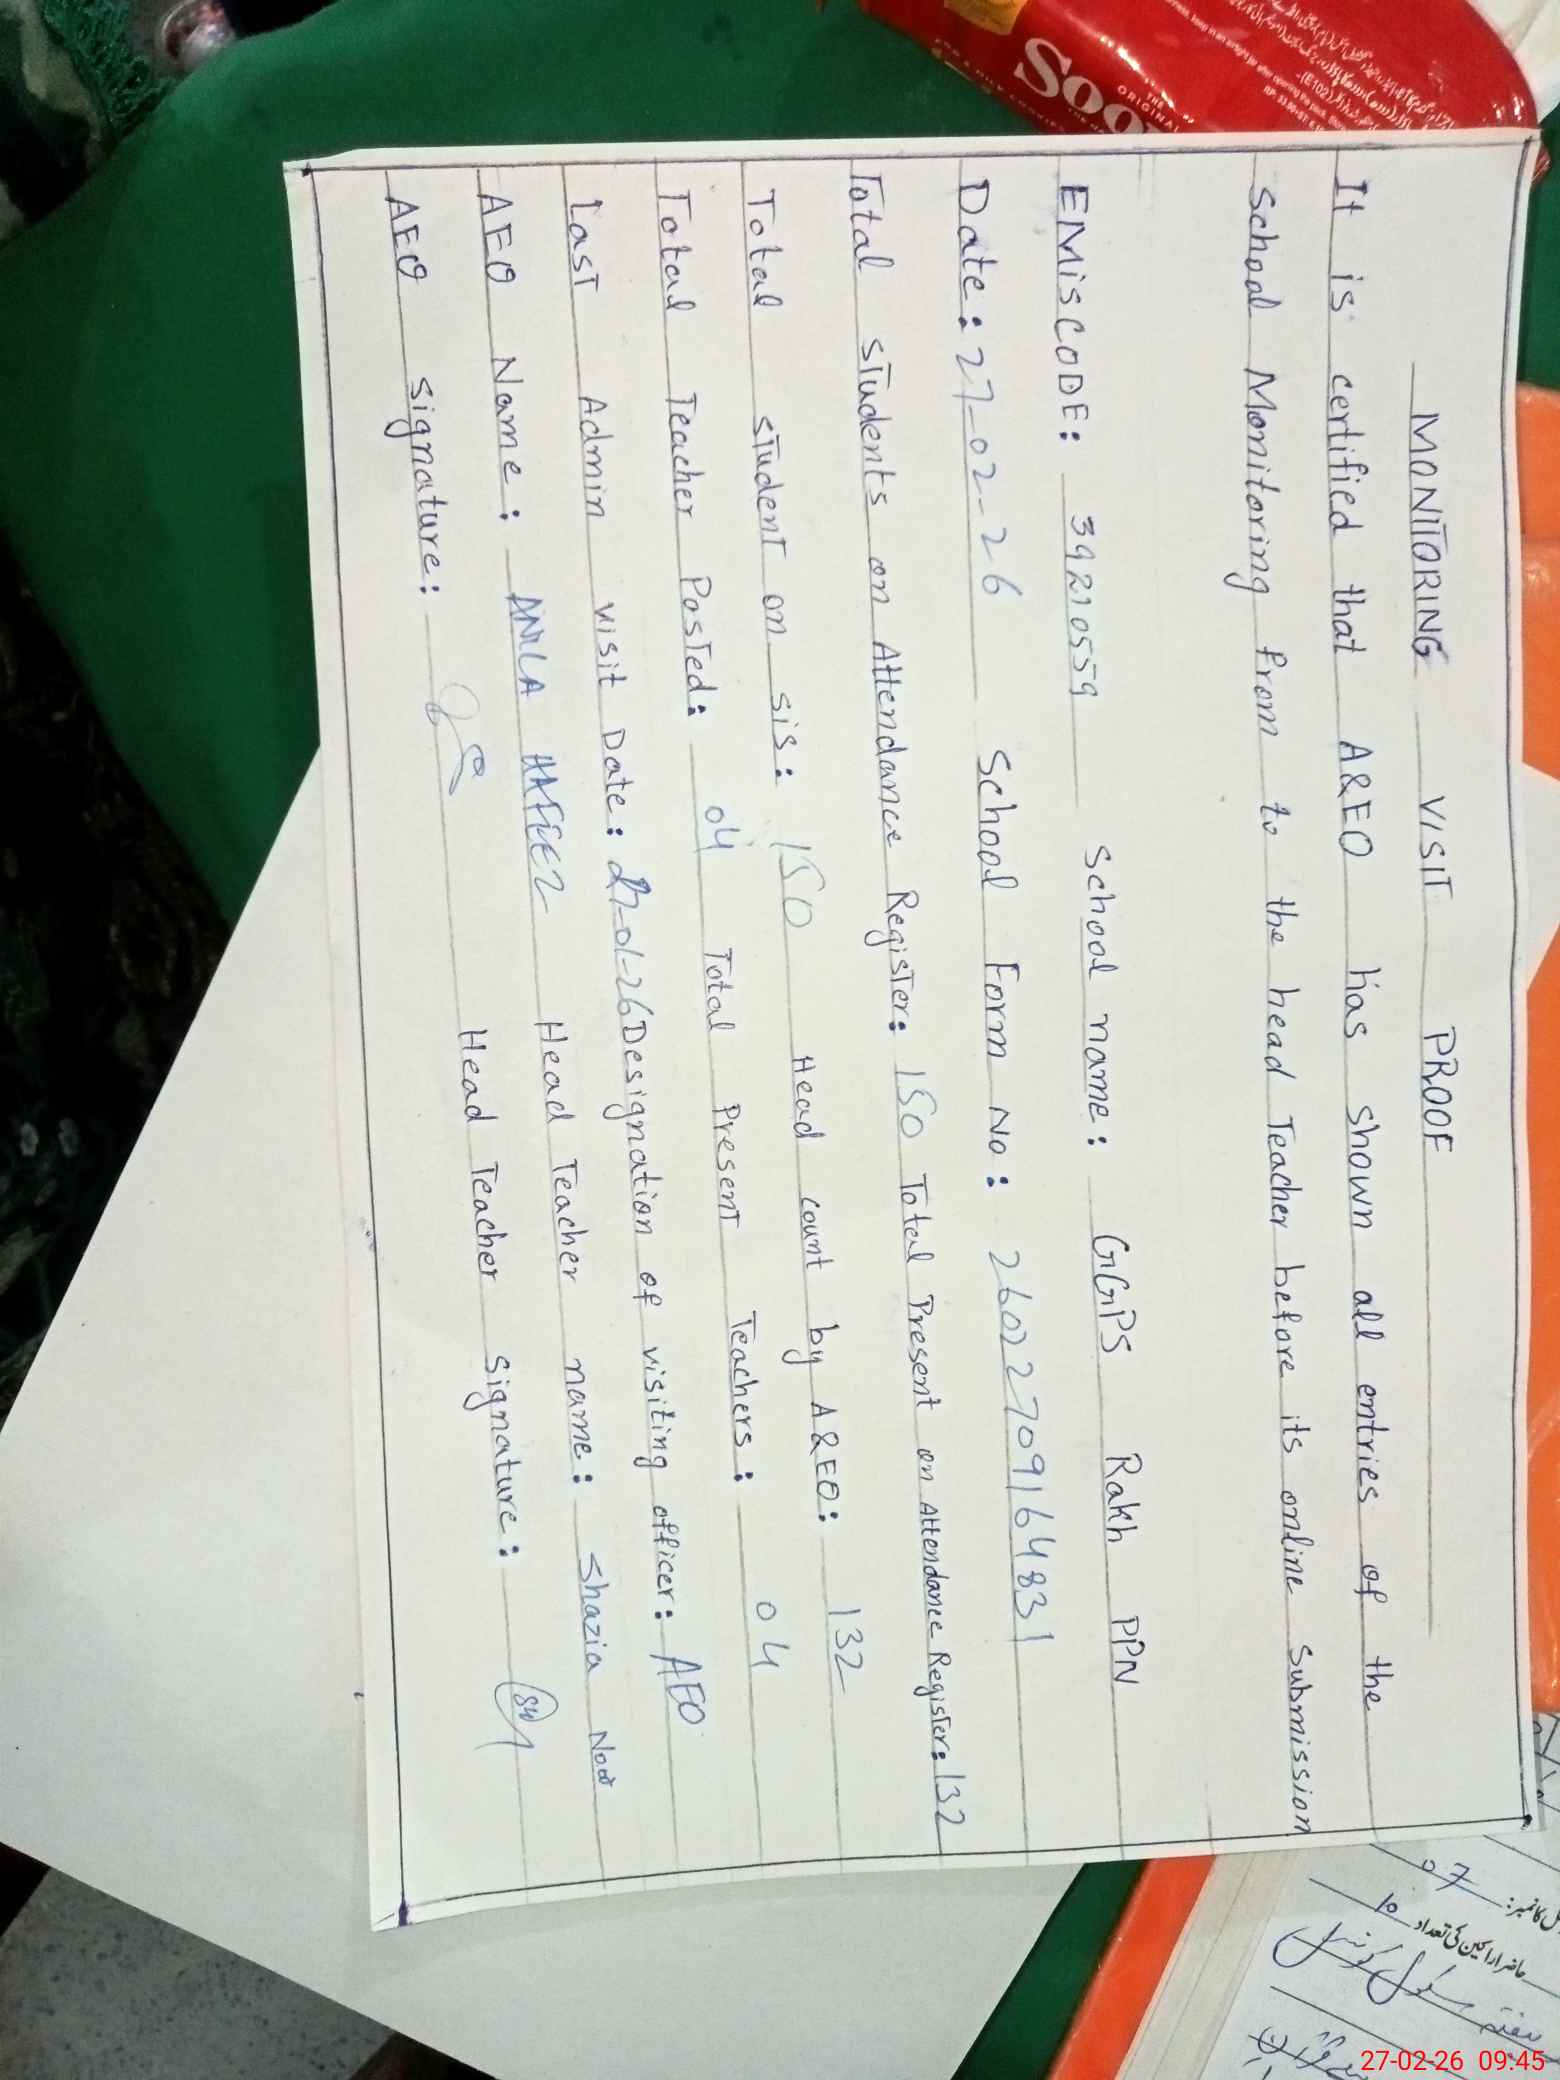 MONITORING VISIT PROOF
It is certified that A&EO has shown all entries of the
School Monitoring from to the head Teacher before its online Submission
EMISCODE: 39210559 School name: GGPS Rakh PPN
Date: 27-02-26 School Form No: 26022709164831
Total students on Attendance Register: 150 Total Present on Attendance Register: 132
Total student on sis: 150 Head count by A&EO: 132
Total Teacher Posted: 04 Total Present Teachers: 04
Last Admin visit Date: 27-01-26 Designation of visiting officer: AEO
AEO Name: ANILA HAFEEZ Head Teacher name: Shazia Noor
AEO signature: Head Teacher signature:
THE
ORIGINAL
Soo
(E102)
07
حاضر اراکین کی تعداد 10
27-02-26 09:45